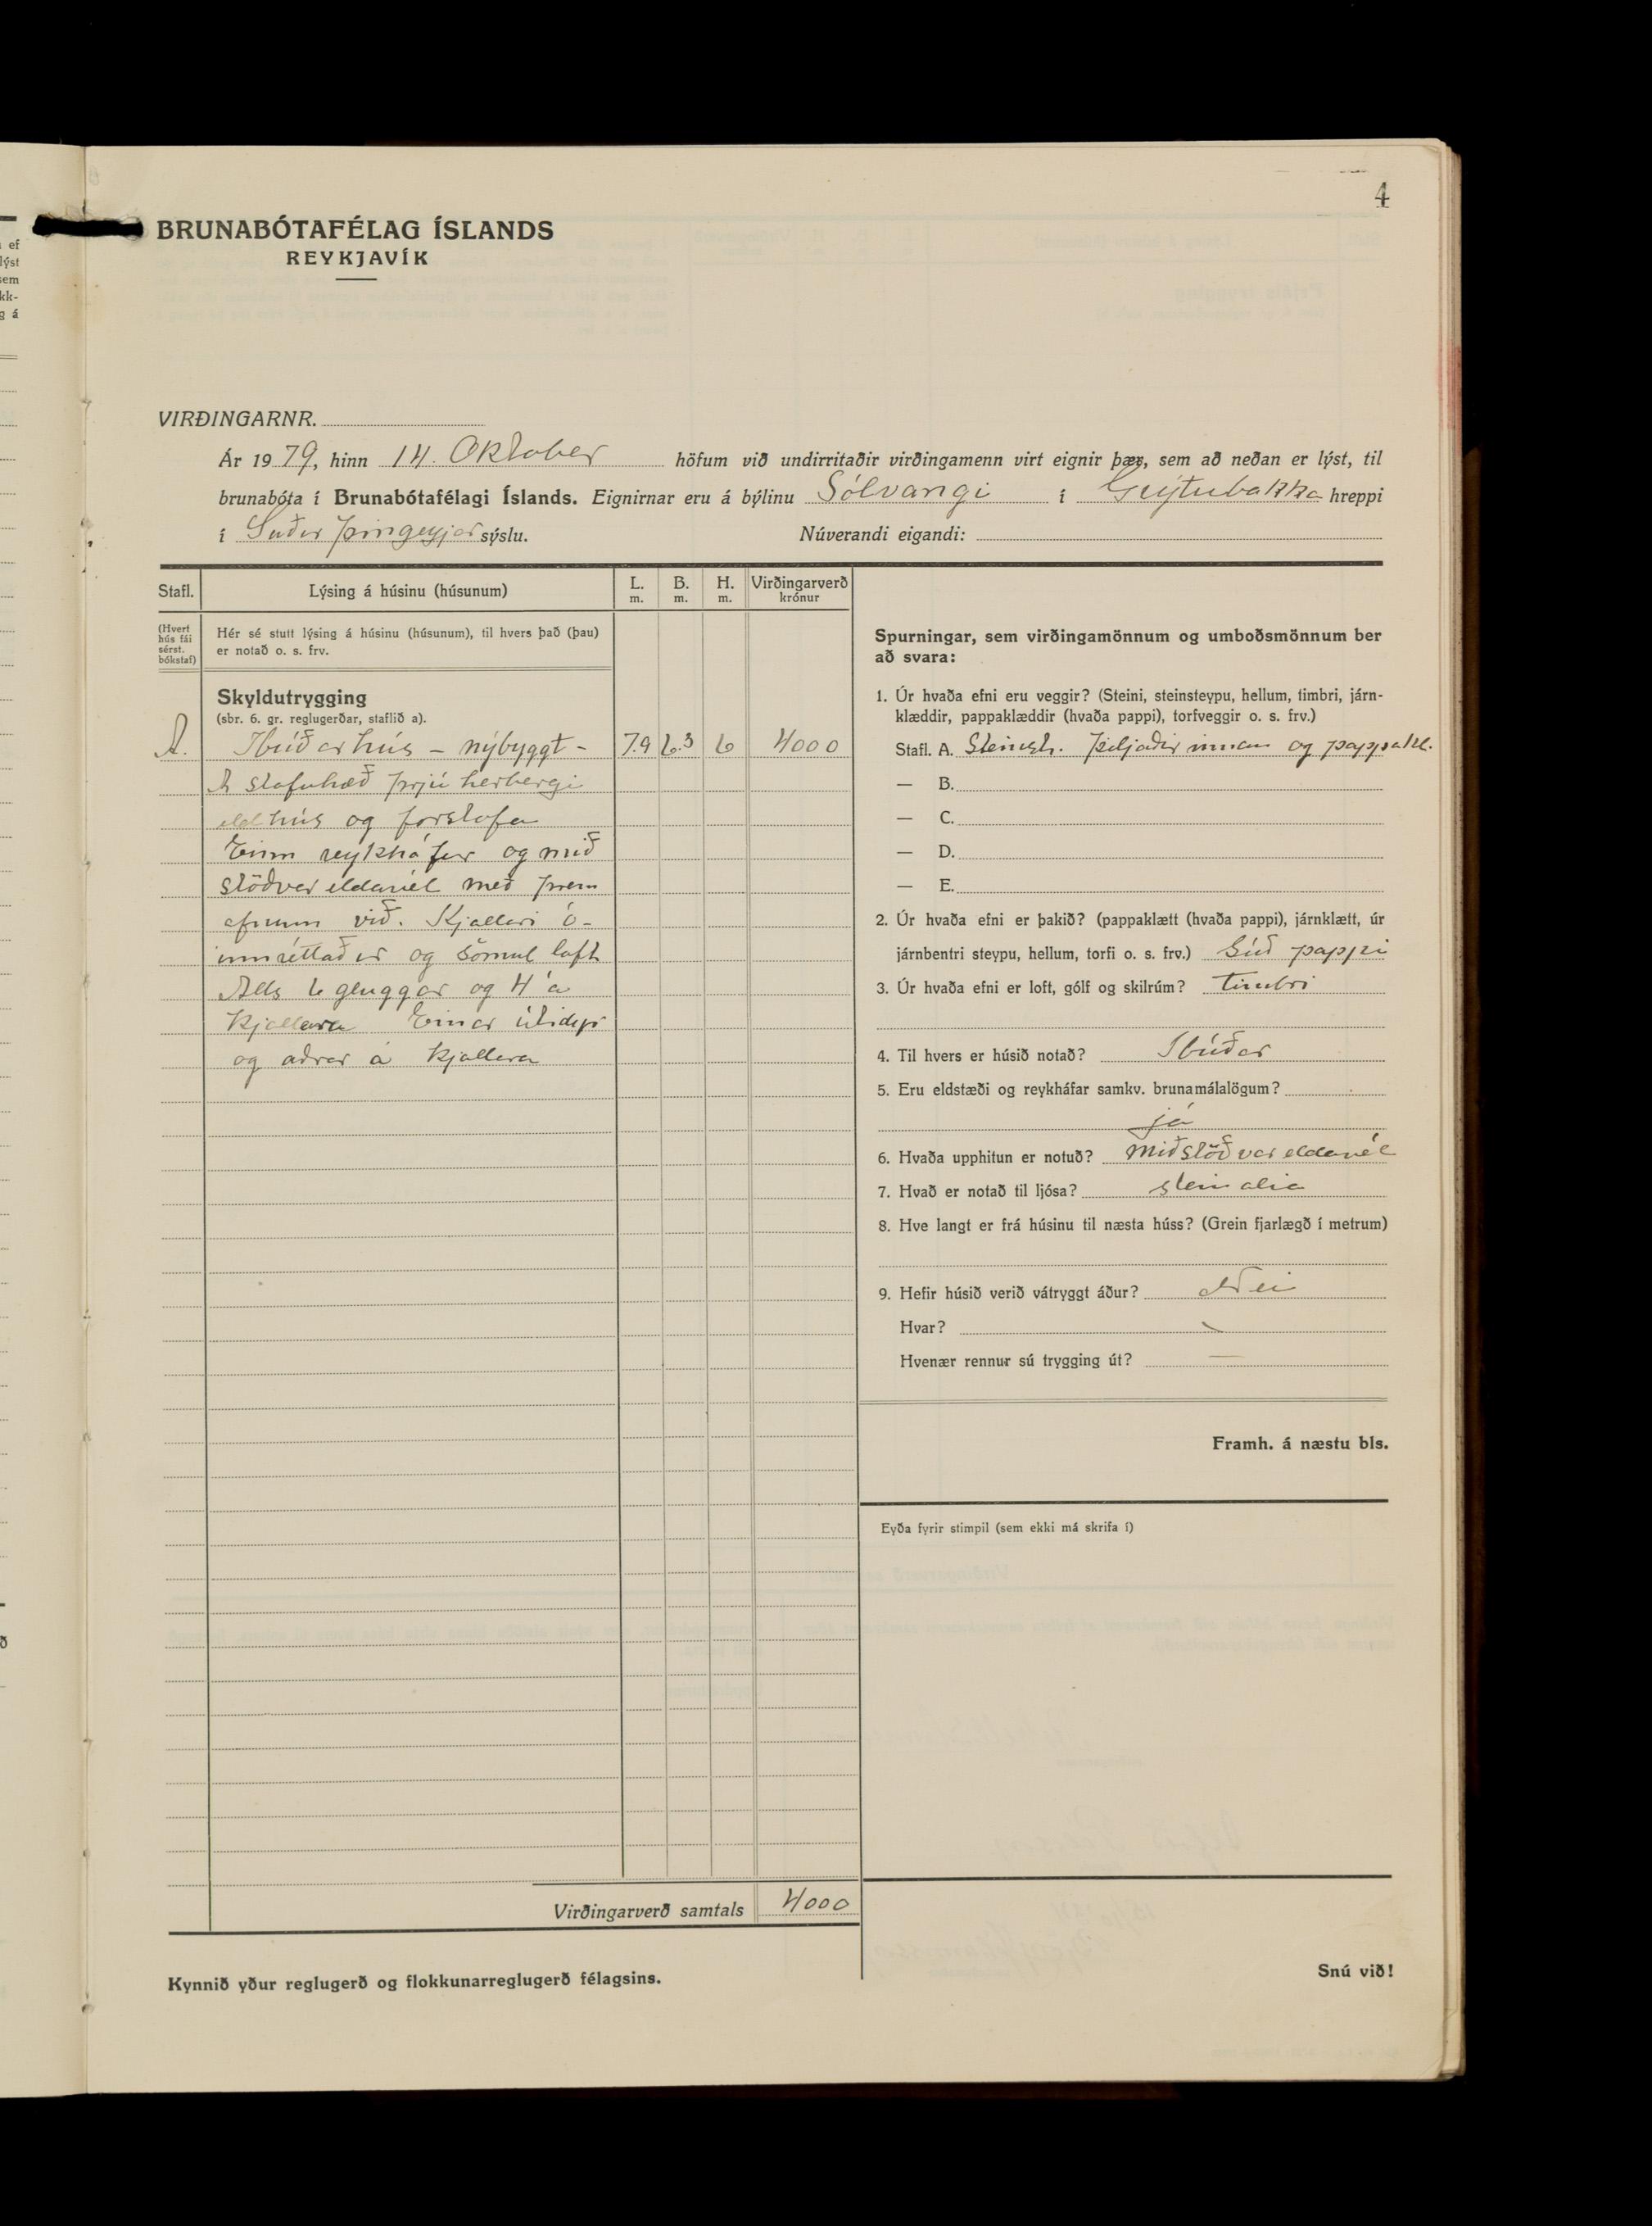 4
BRUNABÓTAFÉLAG ÍSLANDS
REYKJAVÍK
VIRÐINGARNR.
Ár 1979, hinn 14. Oktober höfum við undirritaðir virðingamenn virt eignir þær, sem að neðan er lýst, til
brunabóta í Brunabótafélagi Íslands. Eignirnar eru á býlinu Sólvangi í Grýtubakka hreppi
í Suður þingeyjar sýslu. Núverandi eigandi:
Stafl. Lýsing á húsinu (húsunum) L. m. B. m. H. m. Virðingarverð krónur
(Hvert hús fái sérst. bókstaf)
Hér sé stutt lýsing á húsinu (húsunum), til hvers það (þau)
er notað o. s. frv.
Skyldutrygging
(sbr. 6. gr. reglugerðar, staflið a).
A. Íbúðarhús - nýbyggt - 7.9 6.3 6 4000
Á stofuhæð þrjú herbergi
eldhús og forstofa
Einn reykháfur og mið
stöðvar eldavél með þrem
ofnum við. Kjallari ó-
innréttaður og sömul loft
Alls 6 gluggar og 4 á
kjallara Einar útidyr
og aðrar á kjallara
Virðingarverð samtals 4000
Kynnið yður reglugerð og flokkunarreglugerð félagsins.
Spurningar, sem virðingamönnum og umboðsmönnum ber
að svara:
1. Úr hvaða efni eru veggir? (Steini, steinsteypu, hellum, timbri, járn-
klæddir, pappaklæddir (hvaða pappi), torfveggir o. s. frv.)
Stafl. A. Steinst. þiljaðir innan og pappakl.
— B.
— C.
— D.
— E.
2. Úr hvaða efni er þakið? (pappaklætt (hvaða pappi), járnklætt, úr
járnbentri steypu, hellum, torfi o. s. frv.) Súð pappi
3. Úr hvaða efni er loft, gólf og skilrúm? Timbri
4. Til hvers er húsið notað? Íbúðar
5. Eru eldstæði og reykháfar samkv. brunamálalögum?
já
6. Hvaða upphitun er notuð? Miðstöðvar eldavél
7. Hvað er notað til ljósa? steinolia
8. Hve langt er frá húsinu til næsta húss? (Grein fjarlægð í metrum)
9. Hefir húsið verið vátryggt áður? Nei
Hvar?
Hvenær rennur sú trygging út? —
Framh. á næstu bls.
Eyða fyrir stimpil (sem ekki má skrifa í)
Snú við!